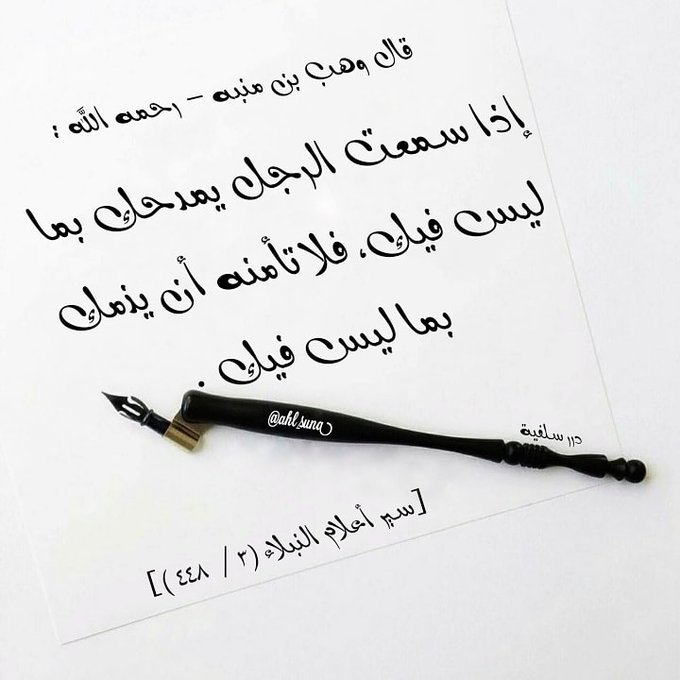 قال وهب بن منبه - رحمه الله :
إذا سمعت الرجل يمدحك بما
ليس فيك، فلا تأمنه أن يذمك
بما ليس فيك .
@ahl_suna
درر سلفية
[سير أعلام النبلاء (٣ / ٤٤٨)]